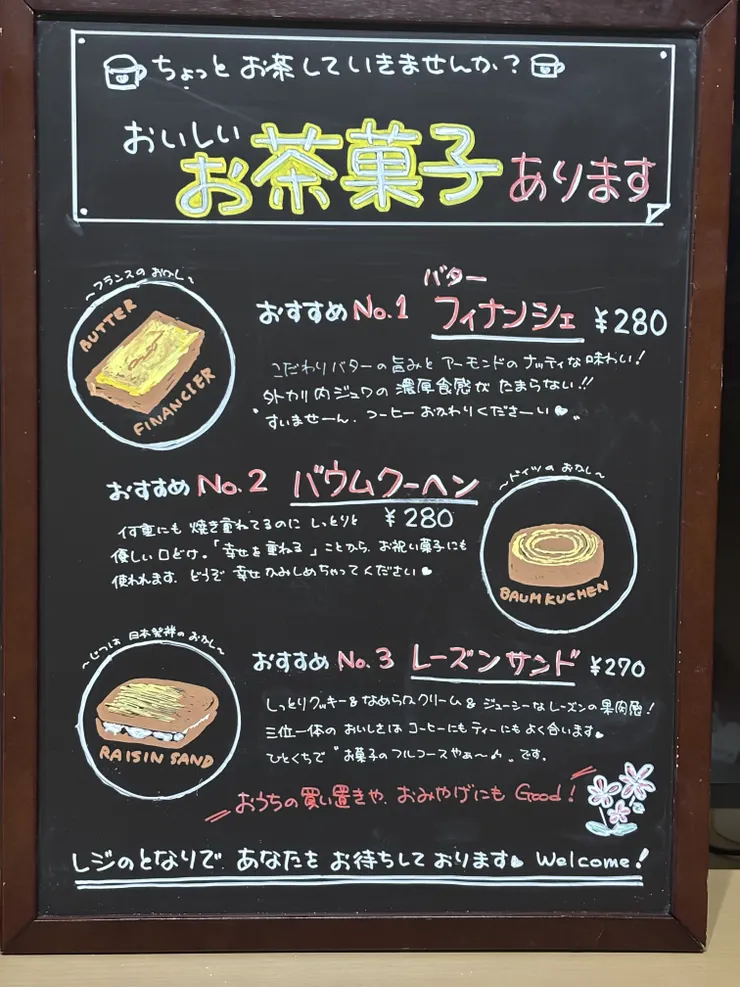 ちょっと お茶していきませんか?
おいしい
お茶菓子あります
~フランスの おかし~
BUTTER
FINANCIER
おすすめ No.1 バター
フィナンシェ ¥280
こだわりバターの旨みと アーモンドのナッティな味わい!
外カリ内ジュワの 濃厚食感が たまらない!!
"すいませーん、コーヒー おかわりくださーい♥"
おすすめ No.2 バウムクーヘン
¥280
何重にも 焼き重ねてるのに しっとりと
優しい口どけ。「幸せを重ねる」ことから、お祝い菓子にも
使われます。どうぞ 幸せ かみしめちゃってください♥
~ドイツの おかし~
BAUMKUCHEN
~じつは 日本発祥の おかし~
RAISIN SAND
おすすめ No.3 レーズンサンド ¥270
しっとりクッキー & なめらかクリーム & ジューシーなレーズンの果肉感!
三位一体の おいしさは コーヒーにも ティーにも よく合います♥
ひとくちで "お菓子のフルコースやぁ〜♪" です。
おうちの買い置きや、おみやげにも Good!
レジのとなりで、あなたを お待ちして おります♥ Welcome!